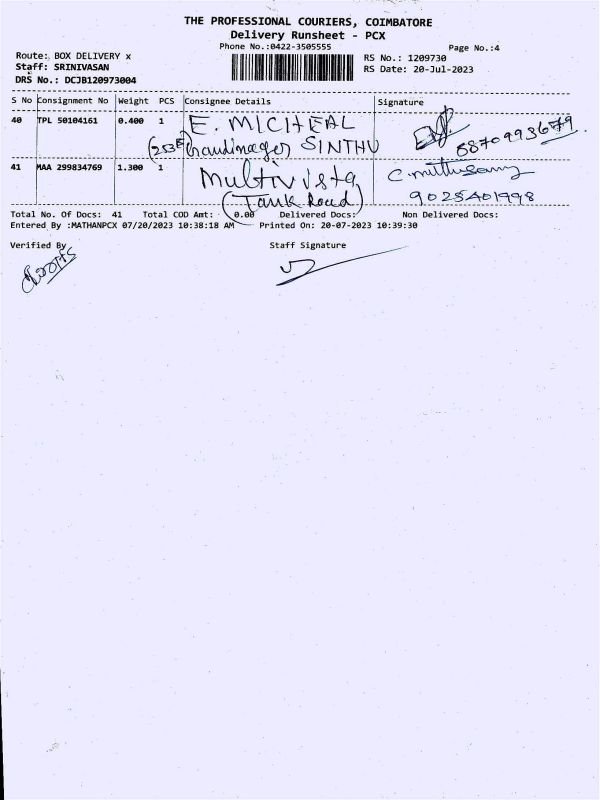 THE PROFESSIONAL COURIERS, COIMBATORE
Delivery Runsheet - PCX
Phone No.:0422-3505555
Page No.:4
Route: BOX DELIVERY x
RS No.: 1209730
Staff: SRINIVASAN
RS Date: 20-Jul-2023
DRS No.: DCJB120973004
S No Consignment No Weight PCS Consignee Details Signature
40 TPL 50104161 0.400 1 E. MICHEAL
SINTHU
41 MAA 299834769 1.300 1 Multivista C. muthusamy
(Tank Road) 9025401998
Total No. Of Docs: 41 Total COD Amt: 0.00 Delivered Docs: Non Delivered Docs:
Entered By :MATHANPCX 07/20/2023 10:38:18 AM Printed On: 20-07-2023 10:39:30
Verified By Staff Signature